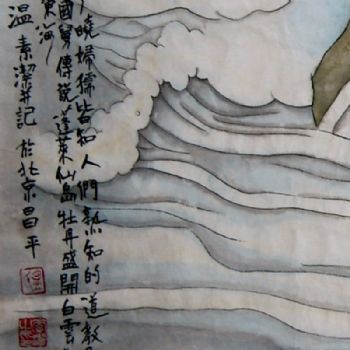 曉婦孺皆知人們熟知的道教
國舅傳說蓬萊仙島牡丹盛開白雲
東海
溫素潔并記於北京昌平